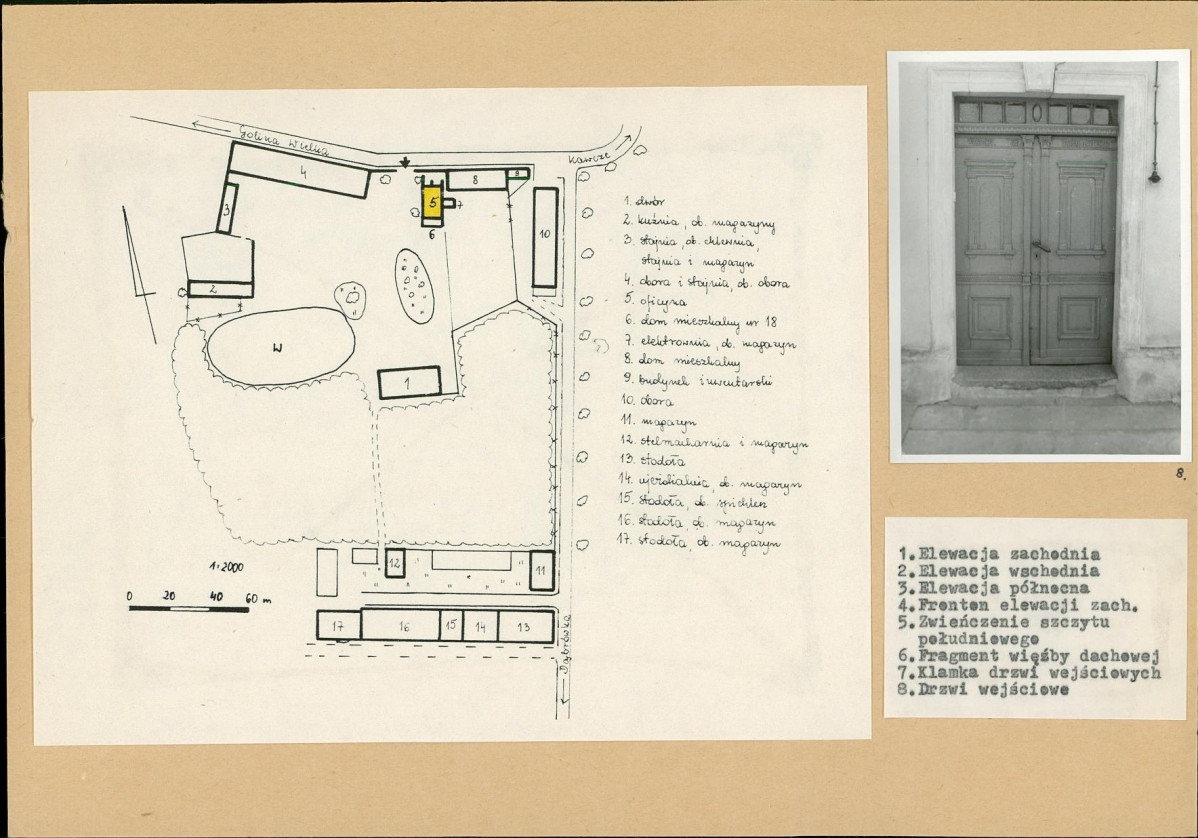 Golina Wielka
Kawcze
4
8
9
5
7
3
6
10
2
W
1
1. dwór
2. kuźnia, ob. magazyny
3. stajnia, ob. chlewnia,
stajnia i magazyn
4. obora i stajnia, ob. obora
5. oficyna
6. dom mieszkalny nr 18
7. elektrownia, ob. magazyn
8. dom mieszkalny
9. budynek inwentarski
10. obora
11. magazyn
12. stelmacharnia i magazyn
13. stodoła
14. ujeżdżalnia, ob. magazyn
15. stodoła, ob. spichlerz
16. stodoła, ob. magazyn
17. stodoła, ob. magazyn
12
11
1:2000
0 20 40 60 m
17
16
15
14
13
Dąbrówka
8.
1.Elewacja zachodnia
2.Elewacja wschodnia
3.Elewacja północna
4.Fronton elewacji zach.
5.Zwieńczenie szczytu
południowego
6.Fragment więźby dachowej
7.Klamka drzwi wejściowych
8.Drzwi wejściowe